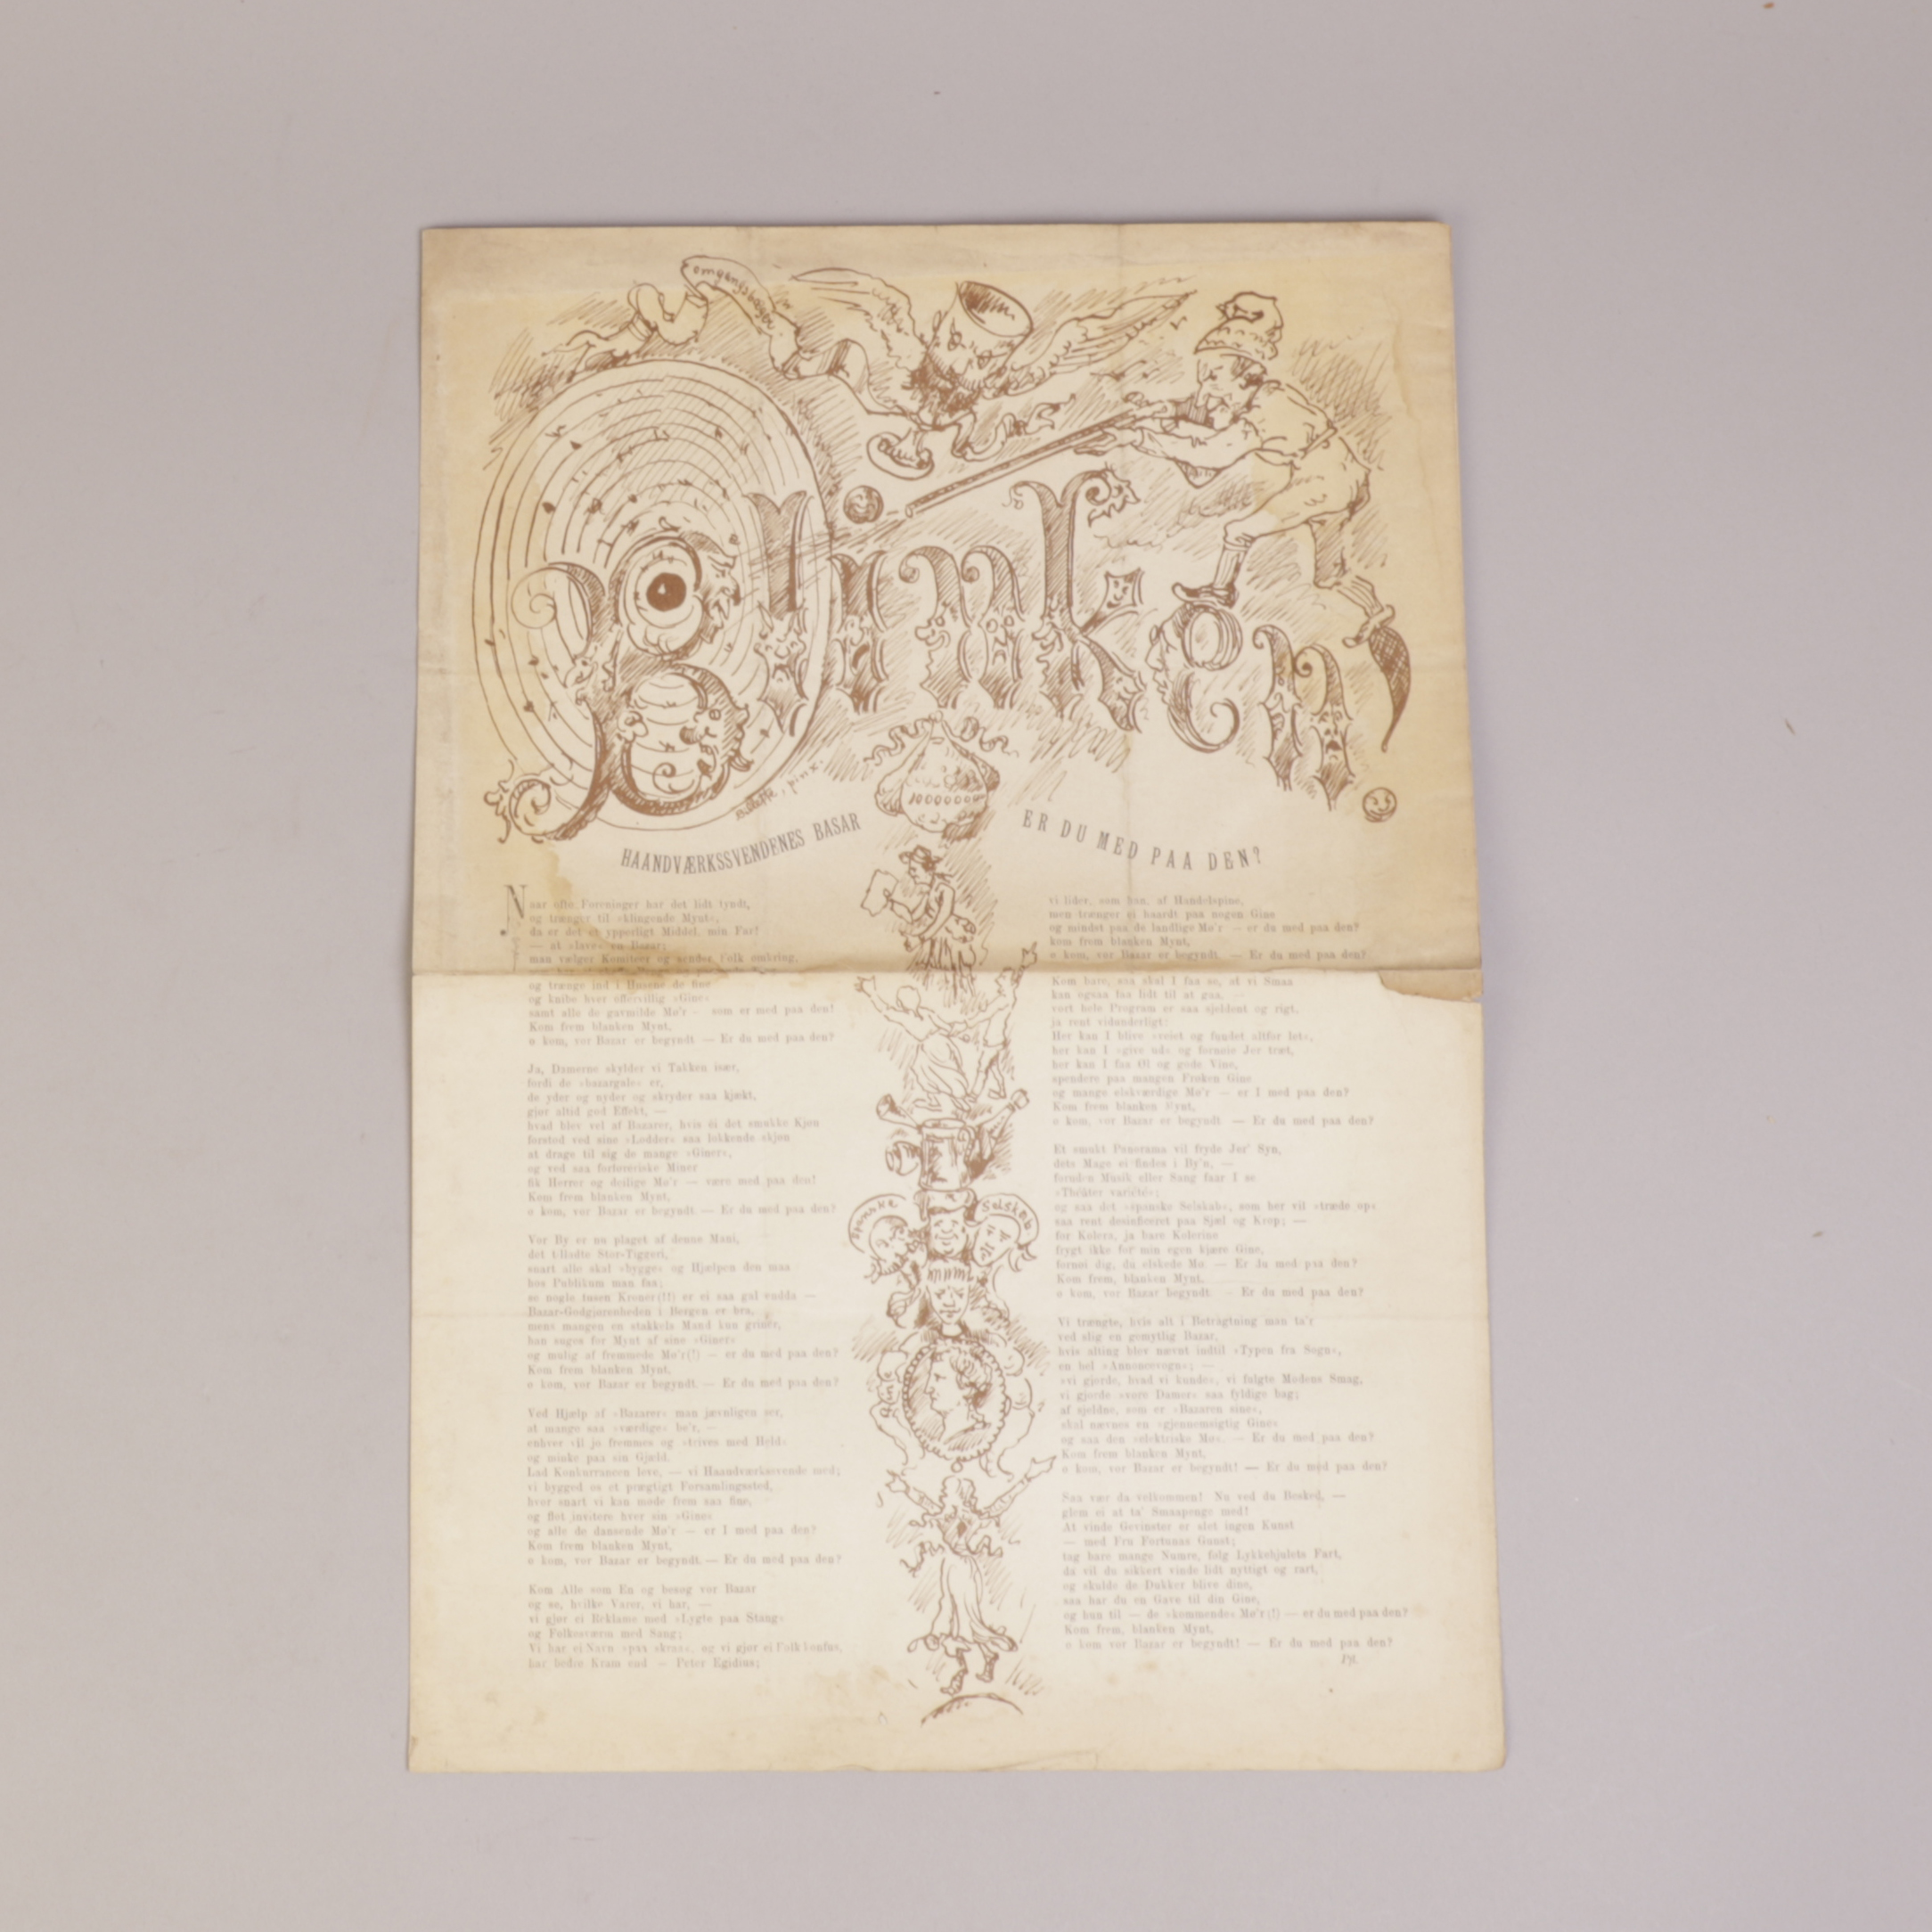 omgangsbogen
Blinken!
Billette, pinx.
1000000
HAANDVÆRKSSVENDENES BASAR
ER DU MED PAA DEN?
Naar ofte Foreninger har det lidt tyndt,
og trænger til »klingende Mynt«,
da er det et ypperligt Middel, min Far!
— at »lave« en Bazar;
man vælger Komiteer og sender Folk omkring,
og trænge ind i Husene de fine
og knibe hver eftervillig »Gine«
samt alle de gavmilde Mø'r — som er med paa den!
Kom frem blanken Mynt,
o kom, vor Bazar er begyndt. — Er du med paa den?
Ja, Damerne skylder vi Takken især,
fordi de »bazargale« er,
de yder og nyder og skryder saa kjækt,
gjør altid god Effekt, —
hvad blev vel af Bazarer, hvis ei det smukke Kjøn
forstod ved sine »Lodder« saa lokkende skjøn
at drage til sig de mange »Giner«,
og ved saa forføreriske Miner
fik Herrer og deilige Mø'r — være med paa den!
Kom frem blanken Mynt,
o kom, vor Bazar er begyndt. — Er du med paa den?
Vor By er nu plaget af denne Mani,
det tilladte Stor-Tiggeri,
snart alle skal »bygge« og Hjælpen den maa
hos Publikum man faa;
se nogle tusen Kroner(!!) er ei saa gal endda —
Bazar-Godgjørenheden i Bergen er bra,
mens mangen en stakkels Mand kun griner,
han suges for Mynt af sine »Giner«
og mulig af fremmede Mø'r(!) — er du med paa den?
Kom frem blanken Mynt,
o kom, vor Bazar er begyndt. — Er du med paa den?
Ved Hjælp af »Bazarer« man jævnligen ser,
at mange saa »værdige« be'r, —
enhver vil jo fremmes og »trives med Held«
og minke paa sin Gjæld.
Lad Konkurrancen leve, — vi Haandværkssvende med;
vi bygged os et prægtigt Forsamlingssted,
hvor snart vi kan møde frem saa fine,
og flot invitere hver sin »Gine«
og alle de dansende Mø'r — er I med paa den?
Kom frem blanken Mynt,
o kom, vor Bazar er begyndt. — Er du med paa den?
Kom Alle som En og besøg vor Bazar
og se, hvilke Varer, vi har, —
vi gjør ei Reklame med »Lygte paa Stang«
og Folkesværm med Sang;
Vi har ei Navn »paa skraas«, og vi gjør ei Folk konfus,
har bedre Kram end — Peter Egidius;
spanske Selskab
Gine
vi lider, som han, af Handelspine,
men trænger ei haardt paa nogen Gine
og mindst paa de landlige Mø'r — er du med paa den?
kom frem blanken Mynt,
o kom, vor Bazar er begyndt. — Er du med paa den?
Kom bare, saa skal I faa se, at vi Smaa
kan ogsaa faa lidt til at gaa, —
vort hele Program er saa sjeldent og rigt,
ja rent vidunderligt!
Her kan I blive »veiet og fundet altfor let«,
her kan I »give ud« og fornøie Jer træt,
her kan I faa Øl og gode Vine,
spendere paa mangen Frøken Gine
og mange elskværdige Mø'r — er I med paa den?
Kom frem blanken Mynt,
o kom, vor Bazar er begyndt — Er du med paa den?
Et smukt Panorama vil fryde Jer' Syn,
dets Mage ei findes i By'n, —
foruden Musik eller Sang faar I se
»Théâter varièté«;
og saa det »spanske Selskab«, som her vil »træde op«
saa rent desinficeret paa Sjæl og Krop; —
for Kolera, ja bare Kolerine
frygt ikke for min egen kjære Gine,
fornøi dig, du elskede Mø — Er du med paa den?
Kom frem, blanken Mynt,
o kom, vor Bazar begyndt. — Er du med paa den?
Vi trængte, hvis alt i Betragtning man ta'r
ved slig en gemytlig Bazar,
hvis alting blev nævnt indtil »Typen fra Sogn«,
en hel »Annoncevogn«; —
»vi gjorde, hvad vi kunde«, vi fulgte Modens Smag,
vi gjorde »vore Damer« saa fyldige bag;
af sjeldne, som er »Bazaren sine«,
skal nævnes en »gjennemsigtig Gine«
og saa den »elektriske Mø«. — Er du med paa den?
Kom frem blanken Mynt,
o kom, vor Bazar er begyndt! — Er du med paa den?
Saa vær da velkommen! Nu ved du Besked, —
glem ei at ta' Smaapenge med!
At vinde Gevinster er slet ingen Kunst
— med Fru Fortunas Gunst;
tag bare mange Numre, følg Lykkehjulets Fart,
da vil du sikkert vinde lidt nyttigt og rart,
og skulde de Dukker blive dine,
saa har du en Gave til din Gine,
og hun til — de »kommende« Mø'r(!) — er du med paa den?
Kom frem, blanken Mynt,
o kom vor Bazar er begyndt! — Er du med paa den?
Pfl.